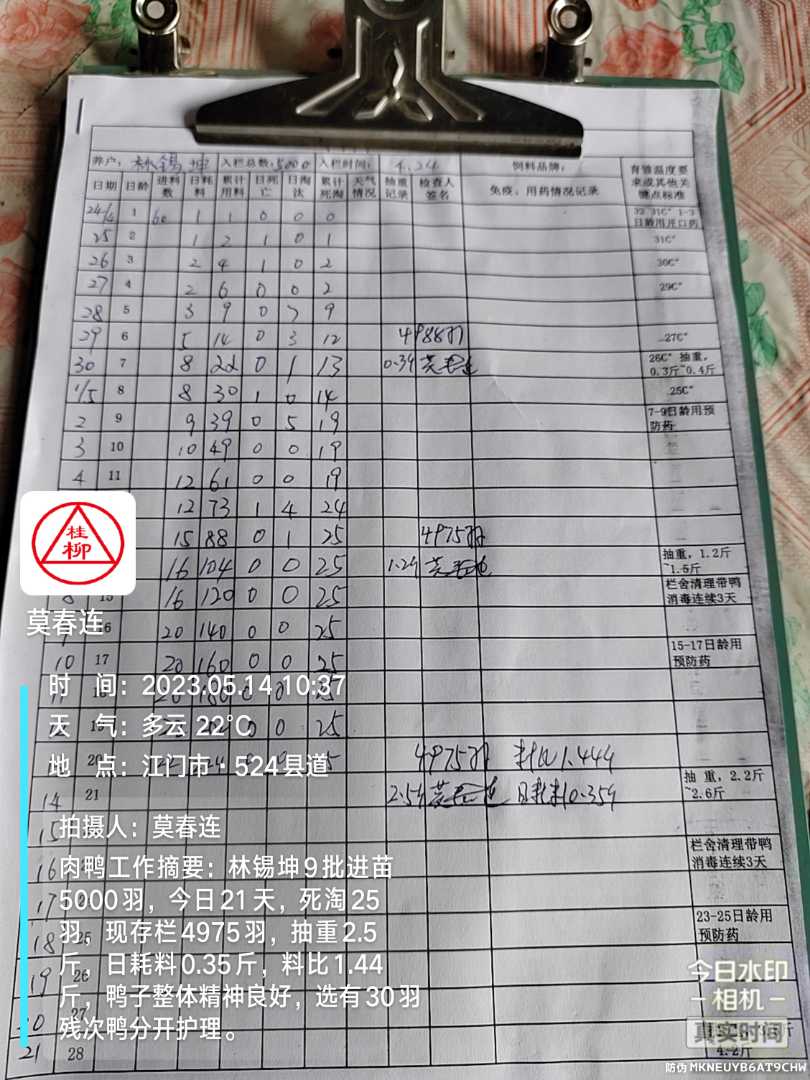 养户：林锡坤 入栏总数：5000 入栏时间： 4.24 饲料品牌： 育雏温度要求或其他关键点标准
日期 日龄 进料数 日耗料 累计用料 日死亡 日淘汰 累计死淘 天气情况 抽重记录 检查人签名 免疫、用药情况记录
24/4 1 60 1 1 0 0 0 32-31C° 1-3日龄用开口药
25 2 1 2 1 0 1 31C°
26 3 2 4 1 0 2 30C°
27 4 2 6 0 0 2 29C°
28 5 3 9 0 7 9
29 6 5 14 0 3 12 4988羽 27C°
30 7 8 22 0 1 13 26C° 抽重，0.3斤~0.4斤
1/5 8 8 30 1 0 14 25C°
2 9 9 39 0 5 19 7-9日龄用预防药
3 10 10 49 0 0 19
4 11 12 61 0 0 19
12 73 1 4 24
15 88 0 1 25 4975羽
16 104 0 0 25 抽重，1.2斤~1.5斤
8 15 16 120 0 0 25 栏舍清理带鸭消毒连续3天
16 20 140 0 0 25
10 17 20 160 0 0 25 15-17日龄用预防药
0 25
0 0 25
20 4975羽 料比1.444
14 21 2.5斤 日耗料0.35斤 抽重，2.2斤~2.6斤
15
16 栏舍清理带鸭消毒连续3天
17
18 25 23-25日龄用预防药
19 26
20 27
21 28 4.2斤
桂柳
莫春连
时 间：2023.05.14 10:37
天 气：多云 22℃
地 点：江门市·524县道
拍摄人：莫春连
肉鸭工作摘要：林锡坤9批进苗
5000羽，今日21天，死淘25
羽，现存栏4975羽，抽重2.5
斤，日耗料0.35斤，料比1.44
斤，鸭子整体精神良好，选有30羽
残次鸭分开护理。
今日水印
相机
真实时间
防伪 MKNEUYB6AT9CHW